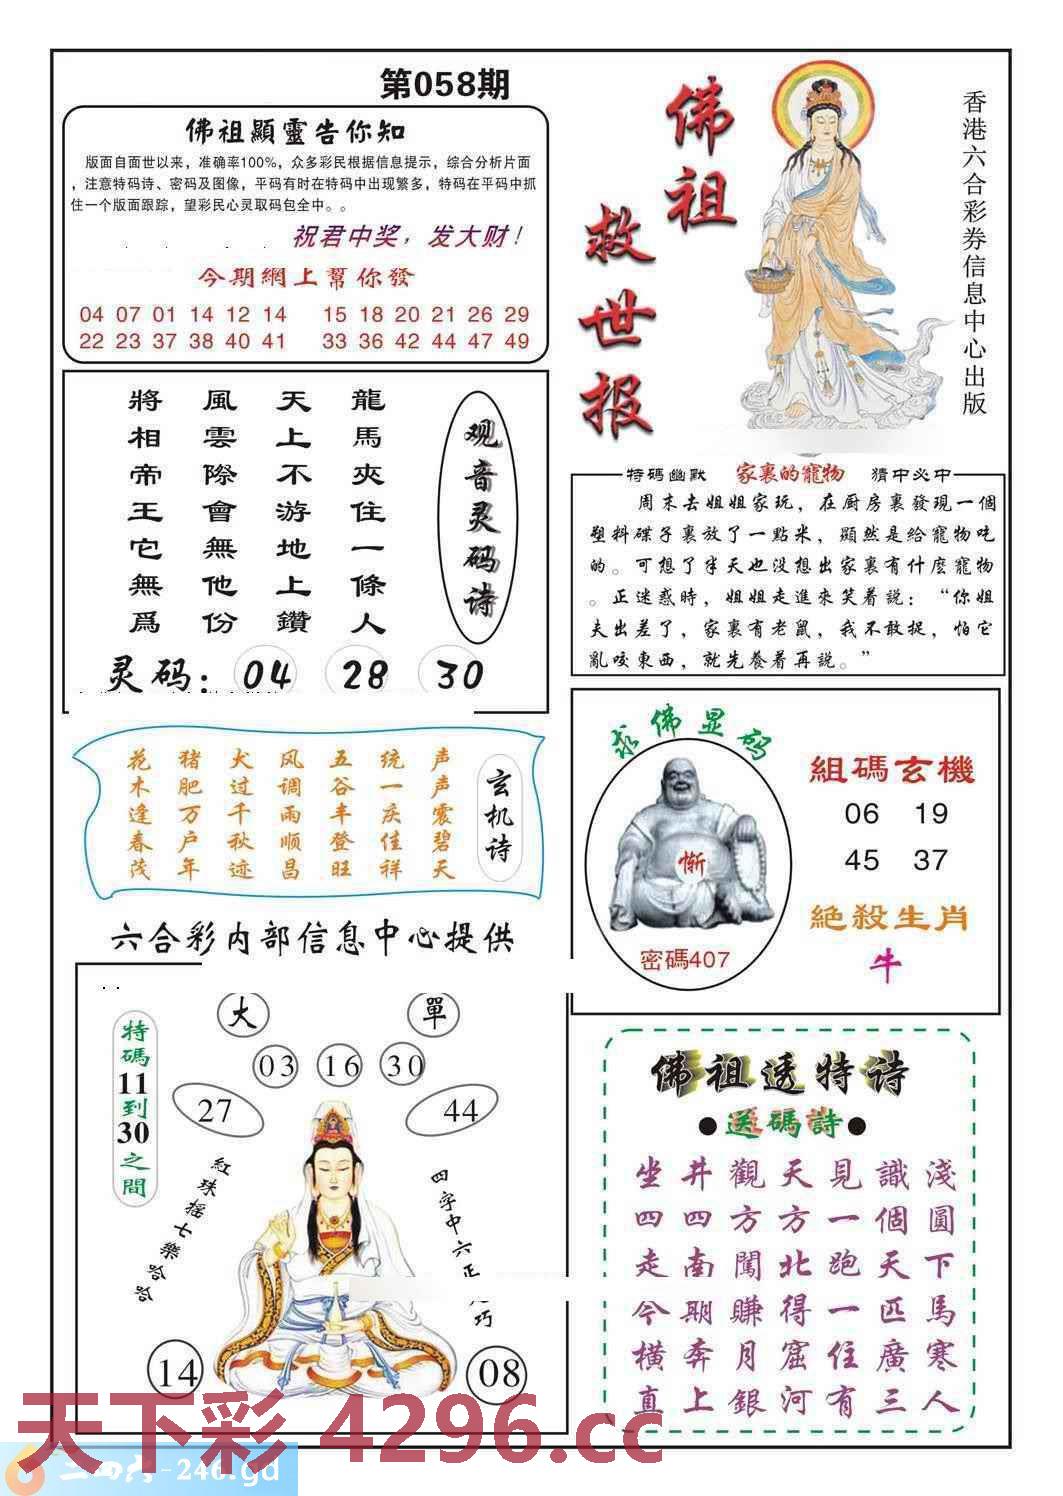 第058期
佛祖顯靈告你知
版面自面世以来，准确率100%，众多彩民根据信息提示，综合分析片面
，注意特码诗、密码及图像，平码有时在特码中出现繁多，特码在平码中抓
住一个版面跟踪，望彩民心灵取码包全中。。
祝君中奖，发大财！
今期網上幫你發
04 07 01 14 12 14 15 18 20 21 26 29
22 23 37 38 40 41 33 36 42 44 47 49
佛祖
救世报
香港六合彩券信息中心出版
观音灵码诗
龍馬夾住一條人
天上不游地上鑽
風雲際會無他份
將相帝王它無爲
灵码：04 28 30
特码幽默 家裏的寵物 猜中必中
周末去姐姐家玩，在厨房裏發現一個
塑料碟子裏放了一點米，顯然是給寵物吃
的。可想了半天也没想出家裏有什麼寵物
。正迷惑時，姐姐走進來笑着説：“你姐
夫出差了，家裏有老鼠，我不敢捉，怕它
亂咬東西，就先養着再説。”
玄机诗
声声震碧天
统一庆佳祥
五谷丰登旺
风调雨顺昌
犬过千秋迹
猪肥万户年
花木逢春茂
求佛显码
惭
密碼407
組碼玄機
06 19
45 37
絕殺生肖
牛
六合彩内部信息中心提供
大 單
03 16 30
27 44
特碼11到30之間
紅珠摇七樂哈哈
四字中六正
巧
14 08
佛祖透特诗
●送碼詩●
坐井觀天見識淺
四四方方一個圓
走南闖北跑天下
今期賺得一匹馬
横奔月窟住廣寒
直上銀河有三人
天下彩 4296.cc
二四六-246.gd